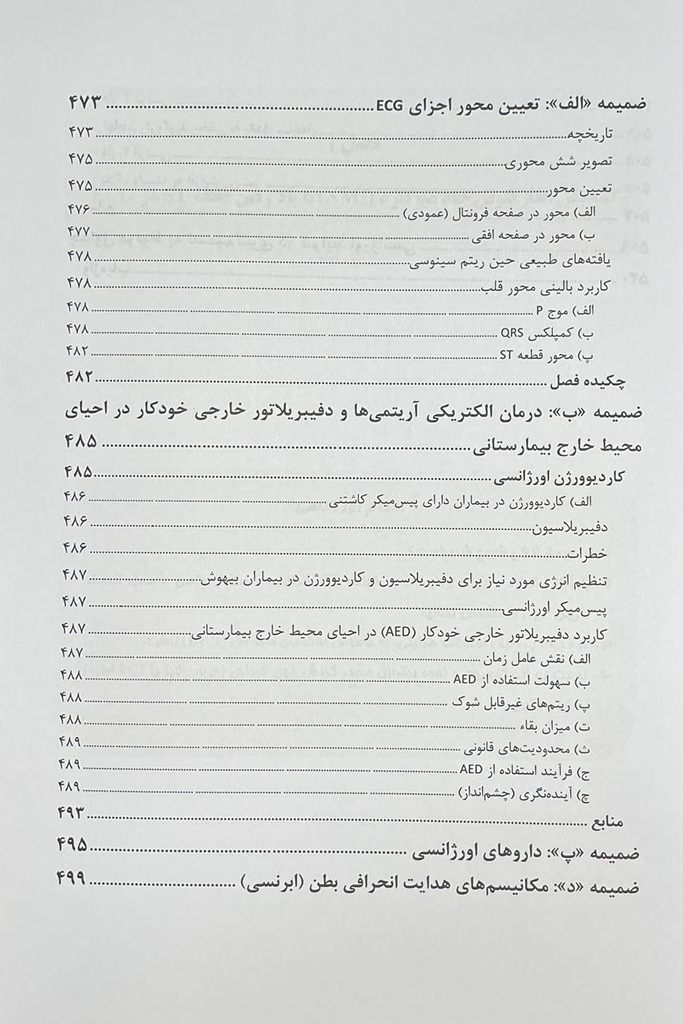 ضمیمه «الف»: تعیین محور اجزای ECG ........ ۴۷۳
تاریخچه ........ ۴۷۳
تصویر شش محوری ........ ۴۷۵
تعیین محور ........ ۴۷۵
الف) محور در صفحه فرونتال (عمودی) ........ ۴۷۶
ب) محور در صفحه افقی ........ ۴۷۷
یافته‌های طبیعی حین ریتم سینوسی ........ ۴۷۸
کاربرد بالینی محور قلب ........ ۴۷۸
الف) موج P ........ ۴۷۸
ب) کمپلکس QRS ........ ۴۷۸
پ) محور قطعه ST ........ ۴۸۲
چکیده فصل ........ ۴۸۲
ضمیمه «ب»: درمان الکتریکی آریتمی‌ها و دفیبریلاتور خارجی خودکار در احیای
محیط خارج بیمارستانی ........ ۴۸۵
کاردیوورژن اورژانسی ........ ۴۸۵
الف) کاردیوورژن در بیماران دارای پیس‌میکر کاشتنی ........ ۴۸۶
دفیبریلاسیون ........ ۴۸۶
خطرات ........ ۴۸۶
تنظیم انرژی مورد نیاز برای دفیبریلاسیون و کاردیوورژن در بیماران بیهوش ........ ۴۸۷
پیس‌میکر اورژانسی ........ ۴۸۷
کاربرد دفیبریلاتور خارجی خودکار (AED) در احیای محیط خارج بیمارستانی ........ ۴۸۷
الف) نقش عامل زمان ........ ۴۸۷
ب) سهولت استفاده از AED ........ ۴۸۸
پ) ریتم‌های غیرقابل شوک ........ ۴۸۸
ت) میزان بقاء ........ ۴۸۸
ث) محدودیت‌های قانونی ........ ۴۸۹
ج) فرآیند استفاده از AED ........ ۴۸۹
چ) آینده‌نگری (چشم‌انداز) ........ ۴۸۹
منابع ........ ۴۹۳
ضمیمه «پ»: داروهای اورژانسی ........ ۴۹۵
ضمیمه «د»: مکانیسم‌های هدایت انحرافی بطن (ابرنسی) ........ ۴۹۹